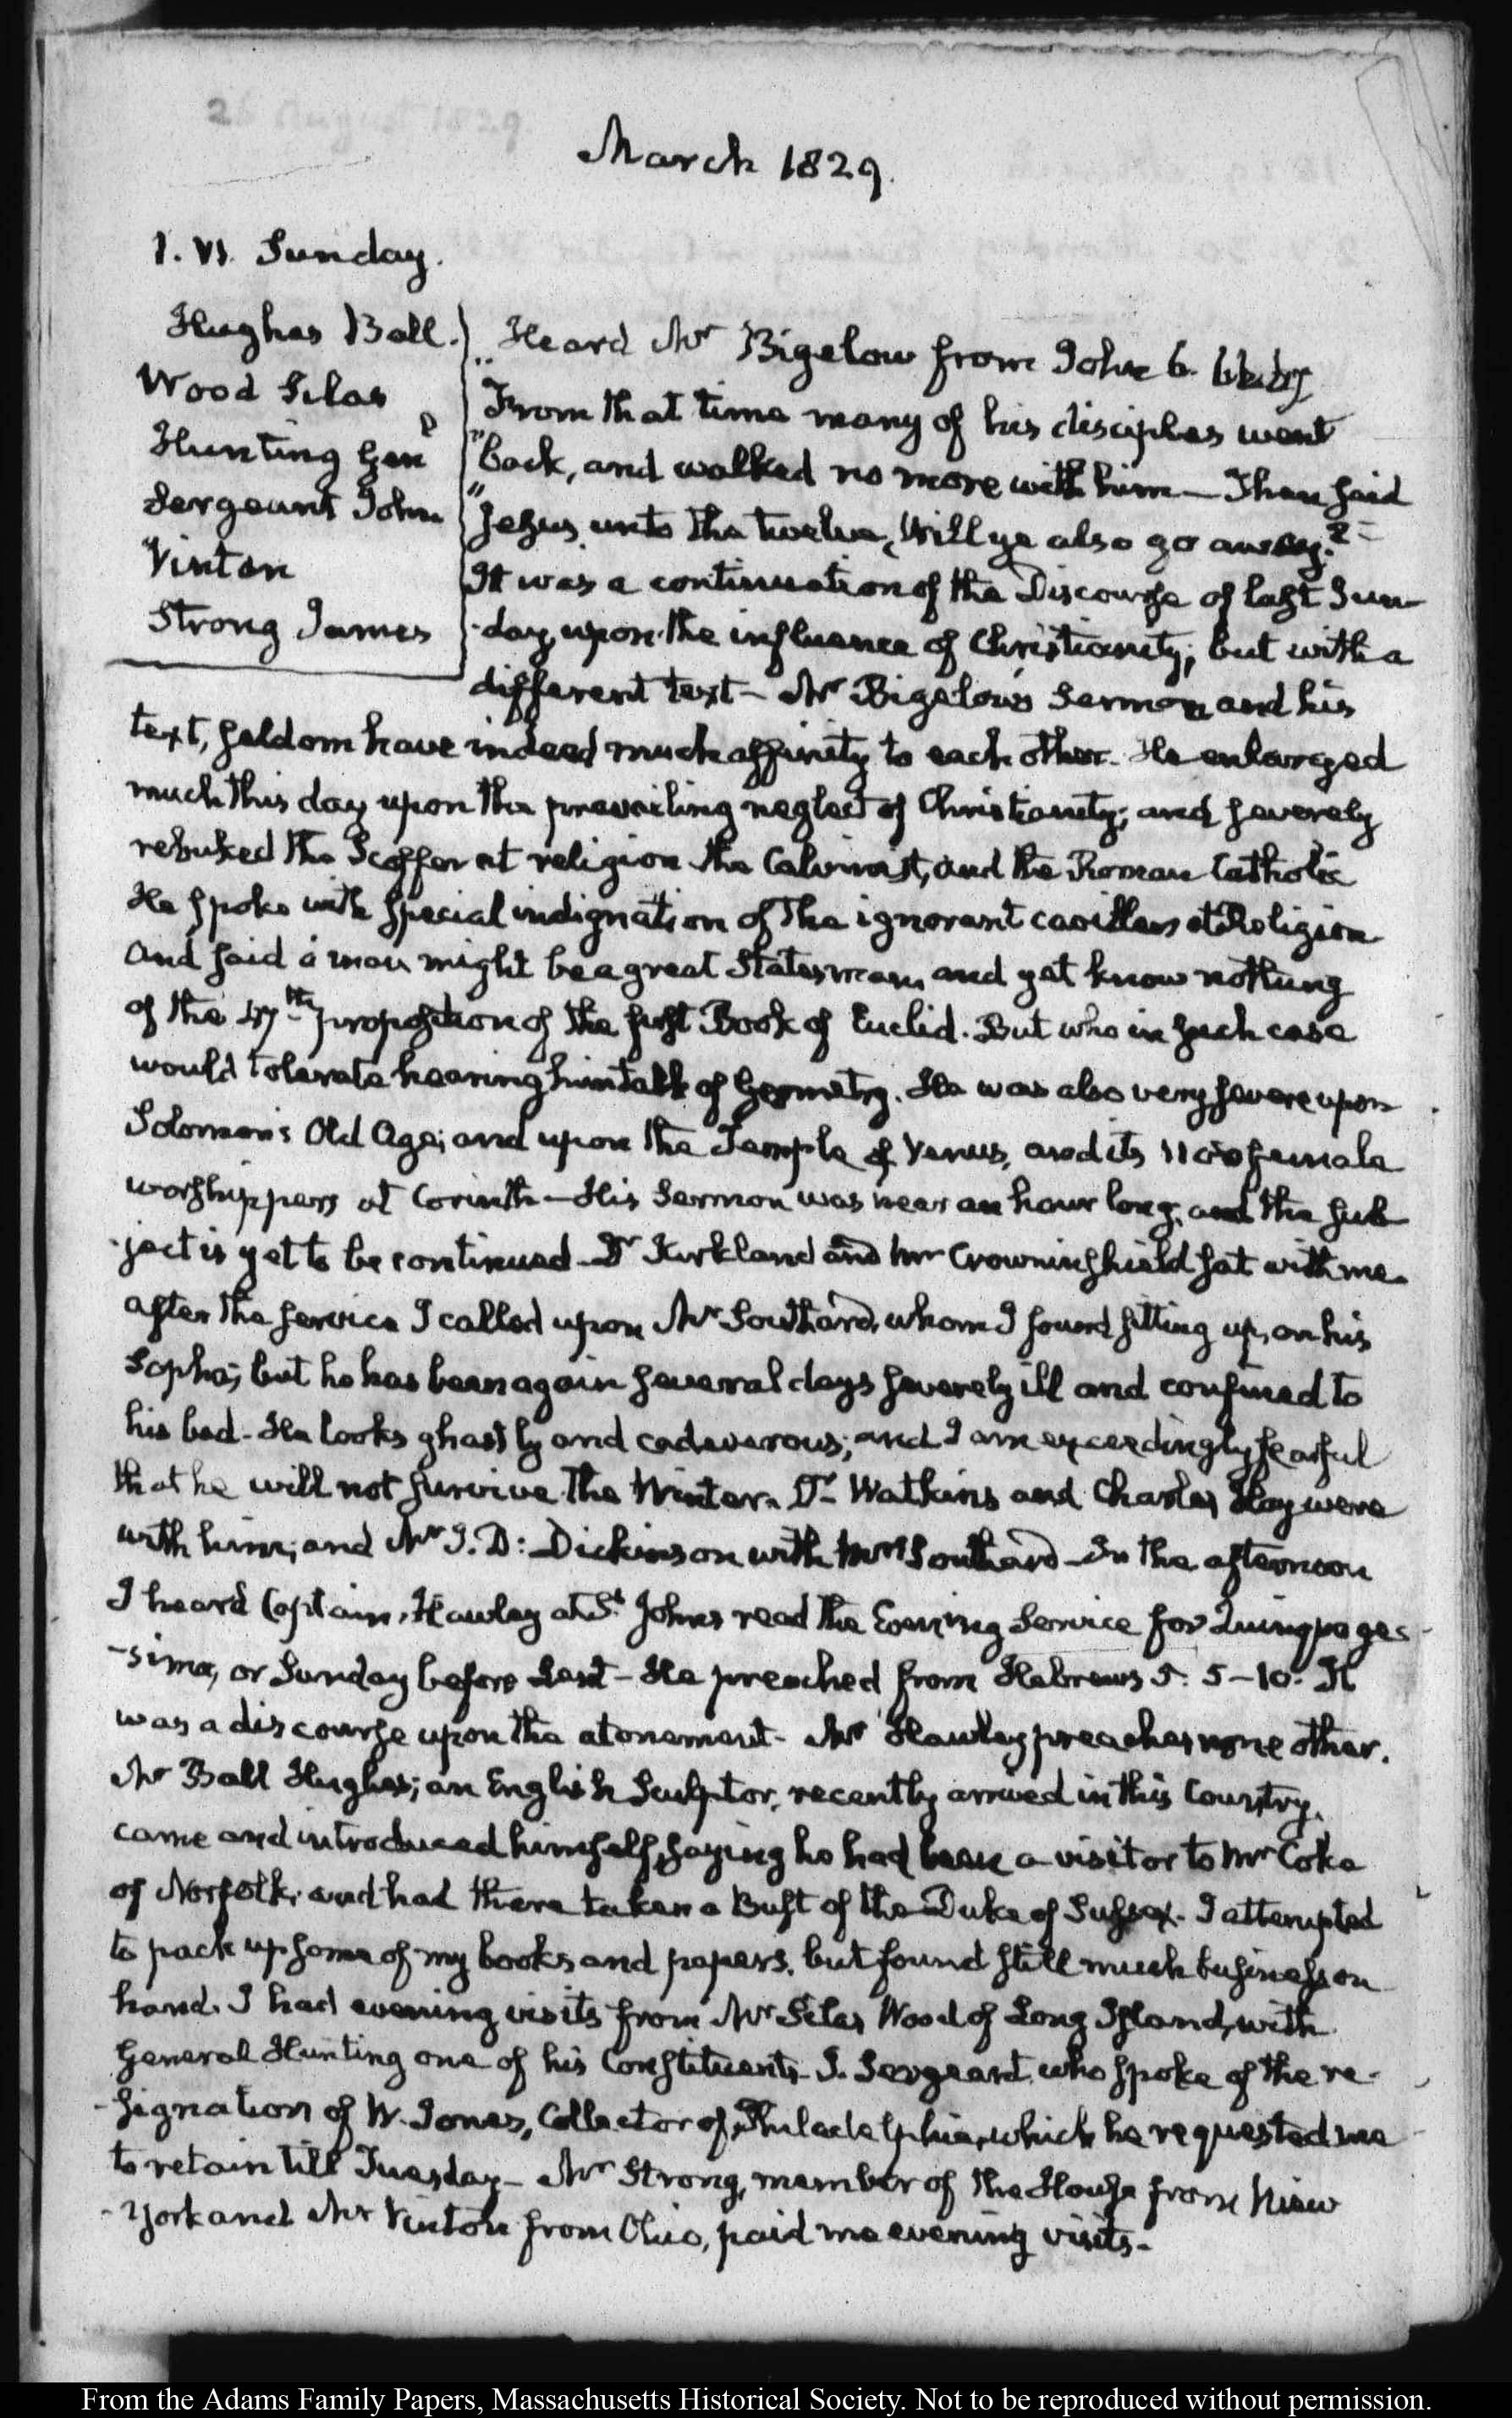 March 1829.
1. VI. Sunday.
Hughes Ball.
Wood Silas
Hunting Genl
Sergeant John
Vinton
Strong James
Heard Mr Bigelow from John 6.
"From that time many of his disciples went
"back, and walked no more with him — Then said
"Jesus unto the twelve, Will ye also go away?"
It was a continuation of the Discourse of last Sun-
-day, upon the influence of Christianity; but with a
different text — Mr Bigelow's Sermon and his
text, seldom have indeed much affinity to each other. He enlarged
much this day upon the prevailing neglect of Christianity; and severely
rebuked the Scoffer at religion the Calvinist, and the Roman Catholic
He spoke with special indignation of the ignorant cavillers at Religion
and said a man might be a great Statesman, and yet know nothing
of the 47th proposition of the first Book of Euclid. But who in such case
would tolerate hearing him talk of Geometry. He was also very severe upon
Solomon's Old Age; and upon the Temple of Venus, and its female
worshippers at Corinth — His Sermon was near an hour long, and the sub
-ject is yet to be continued — Dr Kirkland and Mr Crowninshield sat with me.
after the service I called upon Mr Southard, whom I found sitting up, on his
Sopha; but he has been again several days severely ill and confined to
his bed. He looks ghastly and cadaverous; and I am exceedingly fearful
that he will not survive the Winter. Dr Watkins and Charles Hay were
with him; and Mr J. D: Dickinson with Mrs Southard — In the afternoon
I heard Captain, Hawley at St Johns read the Evening Service for Quinquages-
-sima, or Sunday before Lent — He preached from Hebrews 5. 5–10. It
was a discourse upon the atonement — Mr Hawley preaches none other.
Mr Ball Hughes; an English Sculptor, recently arrived in this Country,
came and introduced himself, saying he had been a visitor to Mr Coke
of Norfolk, and had there taken a Bust of the Duke of Sussex. I attempted
to pack up some of my books and papers, but found still much business on
hand. I had evening visits from Mr Silas Wood of Long Island, with
General Hunting one of his Constituents — J. Sergeant, who spoke of the re-
-signation of W. Jones, Collector of Philadelphia, which he requested me
to retain till Tuesday — Mr Strong, member of the House from New
-York and Mr Vinton from Ohio, paid me evening visits.
From the Adams Family Papers, Massachusetts Historical Society. Not to be reproduced without permission.